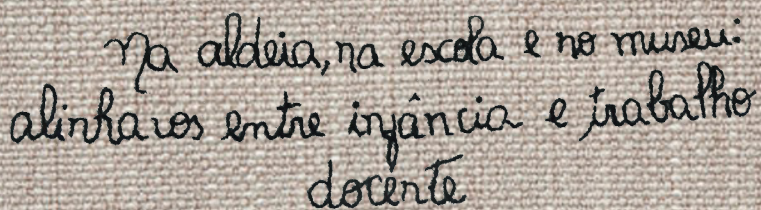 Na aldeia, na escola e no museu:
alinhavos entre infância e trabalho
docente